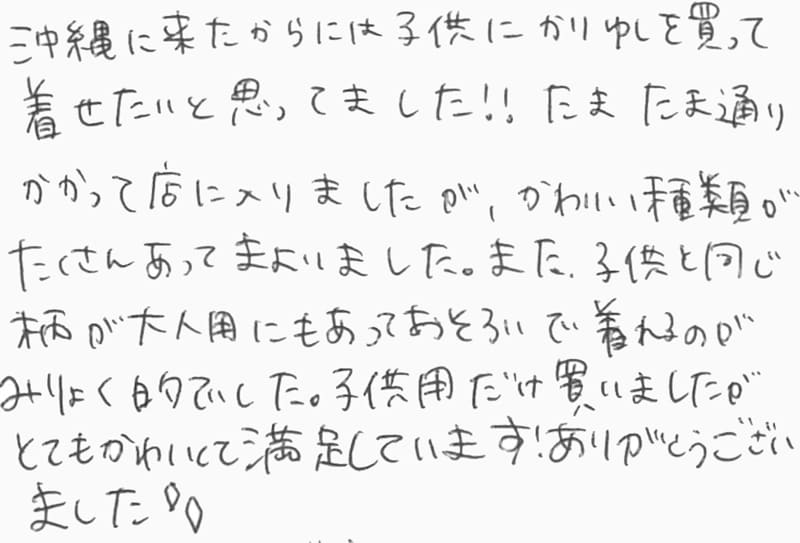 沖縄に来たからには子供にかりゆしを買って
着せたいと思ってました!! たまたま通り
かかって店に入りましたが、かわいい種類が
たくさんあってまよいました。また、子供と同じ
柄が大人用にもあっておそろいで着れるのが
みりょく的でした。子供用だけ買いましたが
とてもかわいくて満足しています!ありがとうござい
ました